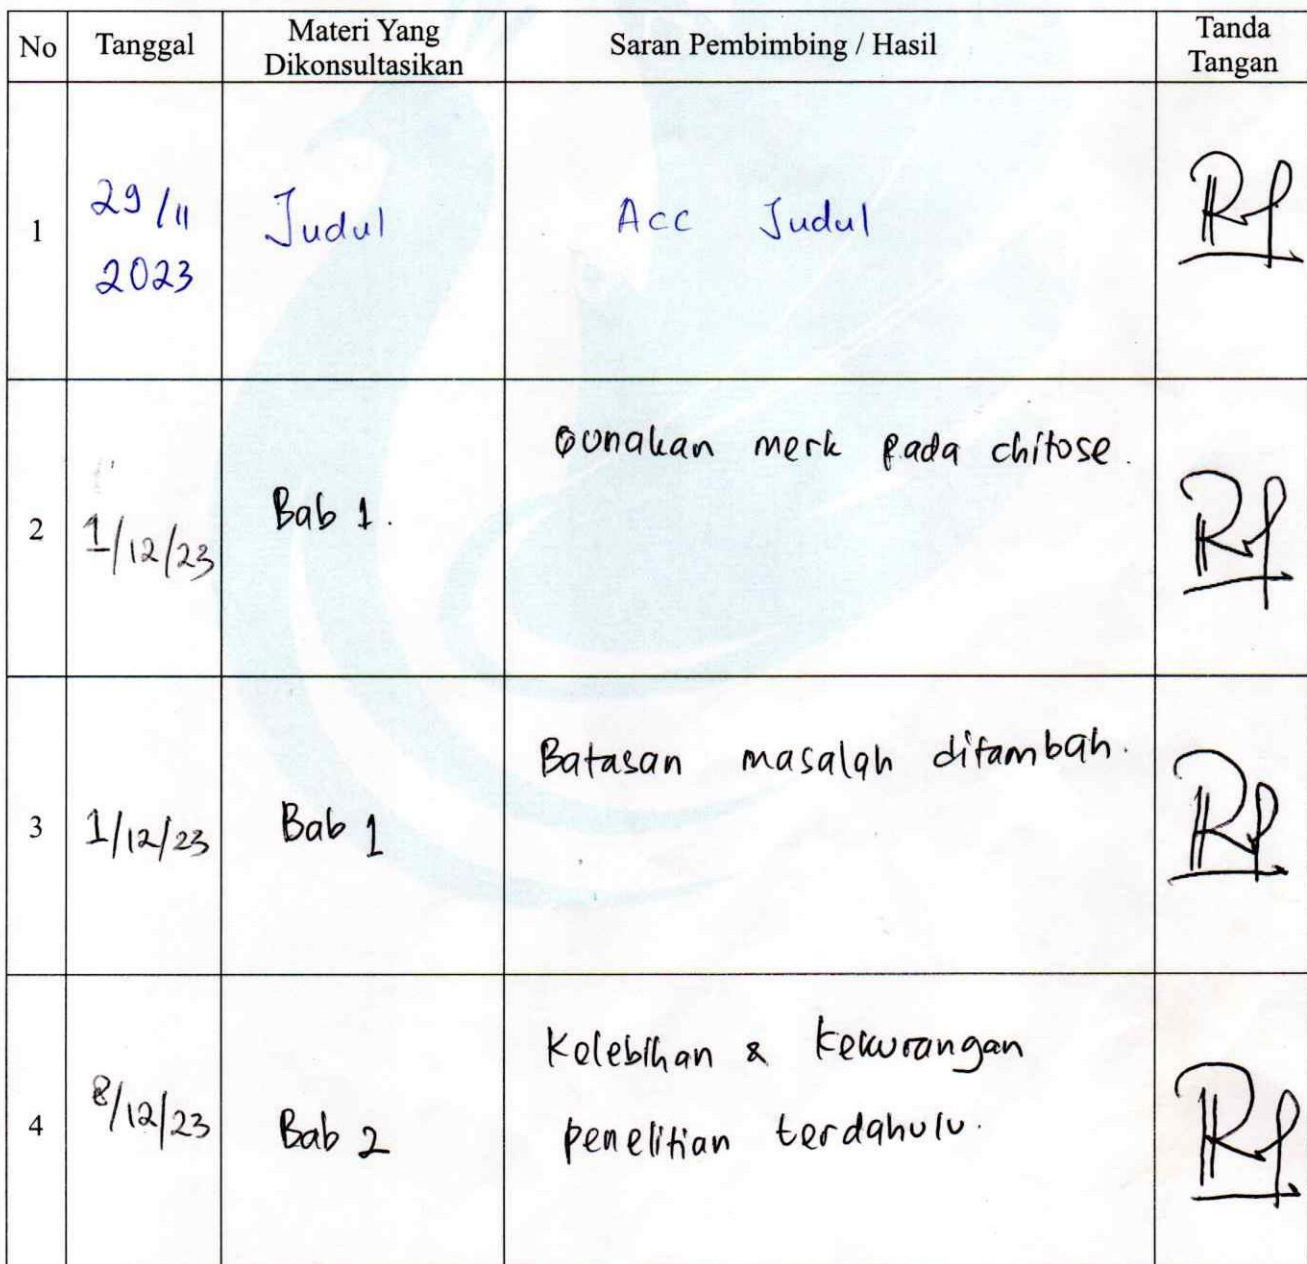 No Tanggal Materi Yang Dikonsultasikan Saran Pembimbing / Hasil Tanda Tangan
1 29/11 2023 Judul Acc Judul
2 1/12/23 Bab 1. Gunakan merk pada chitose.
3 1/12/23 Bab 1 Batasan masalah ditambah.
4 8/12/23 Bab 2 Kelebihan & kekurangan
penelitian terdahulu.